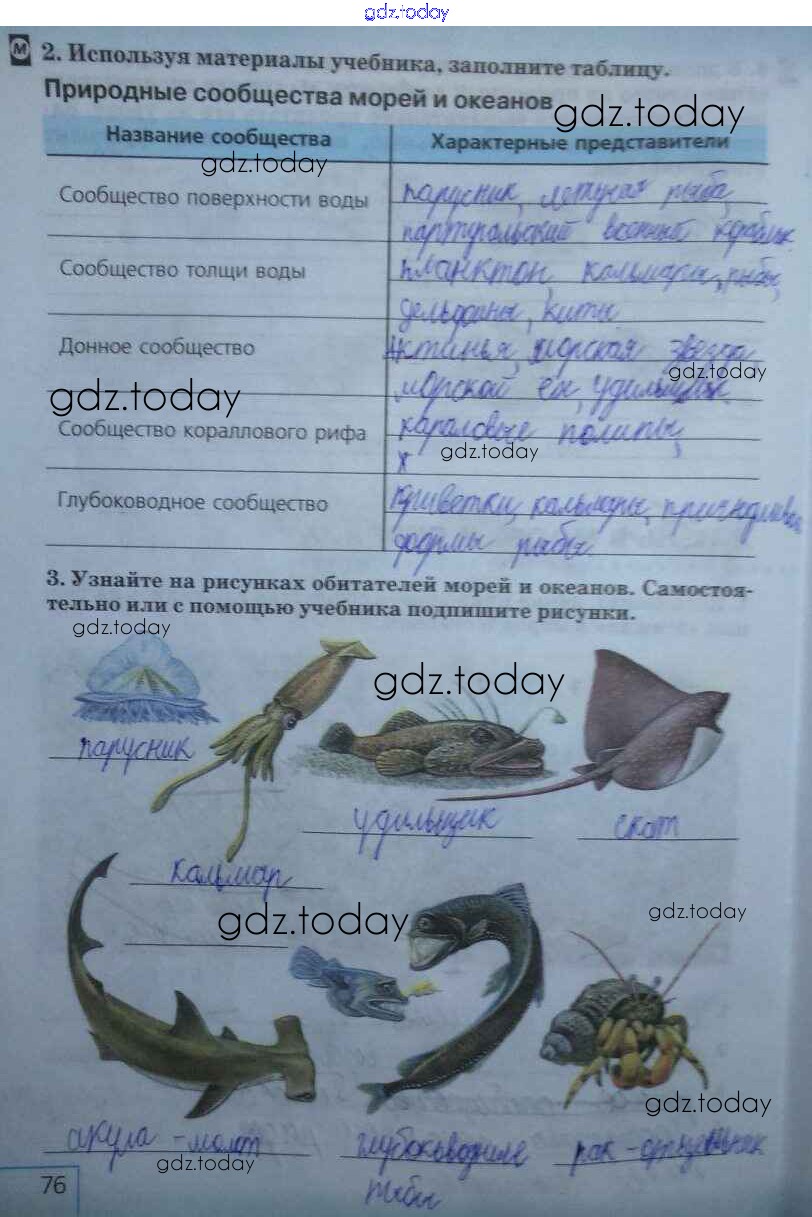 gdz.today
М 2. Используя материалы учебника, заполните таблицу.
Природные сообщества морей и океанов
gdz.today
Название сообщества Характерные представители
gdz.today
Сообщество поверхности воды парусник, летучая рыба,
партугальский военный кораблик
Сообщество толщи воды планктон, кальмары, рыбы,
дельфины, киты
Донное сообщество актинья, морская звезда
gdz.today
gdz.today морской ёж, удильщик
Сообщество кораллового рифа караловые полипы,
gdz.today
Глубоководное сообщество криветки, кальмары,
формы рыбы
3. Узнайте на рисунках обитателей морей и океанов. Самостоя-
тельно или с помощью учебника подпишите рисунки.
gdz.today
gdz.today
парусник
удильщик скат
кальмар
gdz.today gdz.today
gdz.today
акула - молот глубоководные рак - отшельник
gdz.today
76 рыбы